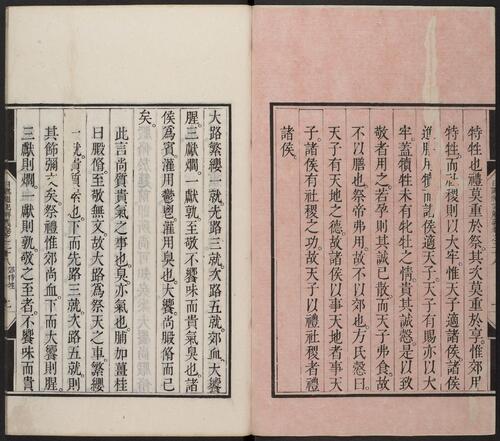 特牲也禮莫重於祭其次莫重於享惟郊用
特牲而社稷則以大牢惟天子適諸侯諸侯
膳用犢而諸侯適天子天子有賜亦以大
牢蓋犢牲未有牝牡之情貴其誠慤是以致
敬者用之若孕則其誠已散而天子弗食故
不以膳也祭帝弗用故不以郊也方氏慤曰
天子有天地之德故諸侯以事天地者事天
子諸侯有社稷之功故天子以禮社稷者禮
諸侯
大路繁纓一就先路三就次路五就郊血大饗
腥三獻爓一獻孰至敬不饗味而貴氣臭也諸
侯為賓灌用鬱鬯灌用臭也大饗尚腶脩而已
矣
此言尚質貴氣之事也臭亦氣也脯加薑桂
曰腶脩至敬無文故大路為祭天之車繁纓
一就貴質系也下而先路三就次路五就則
其飾彌文矣祭禮惟郊尚血下而大饗則腥
三獻則爓一獻則孰敬之至者不饗味而貴